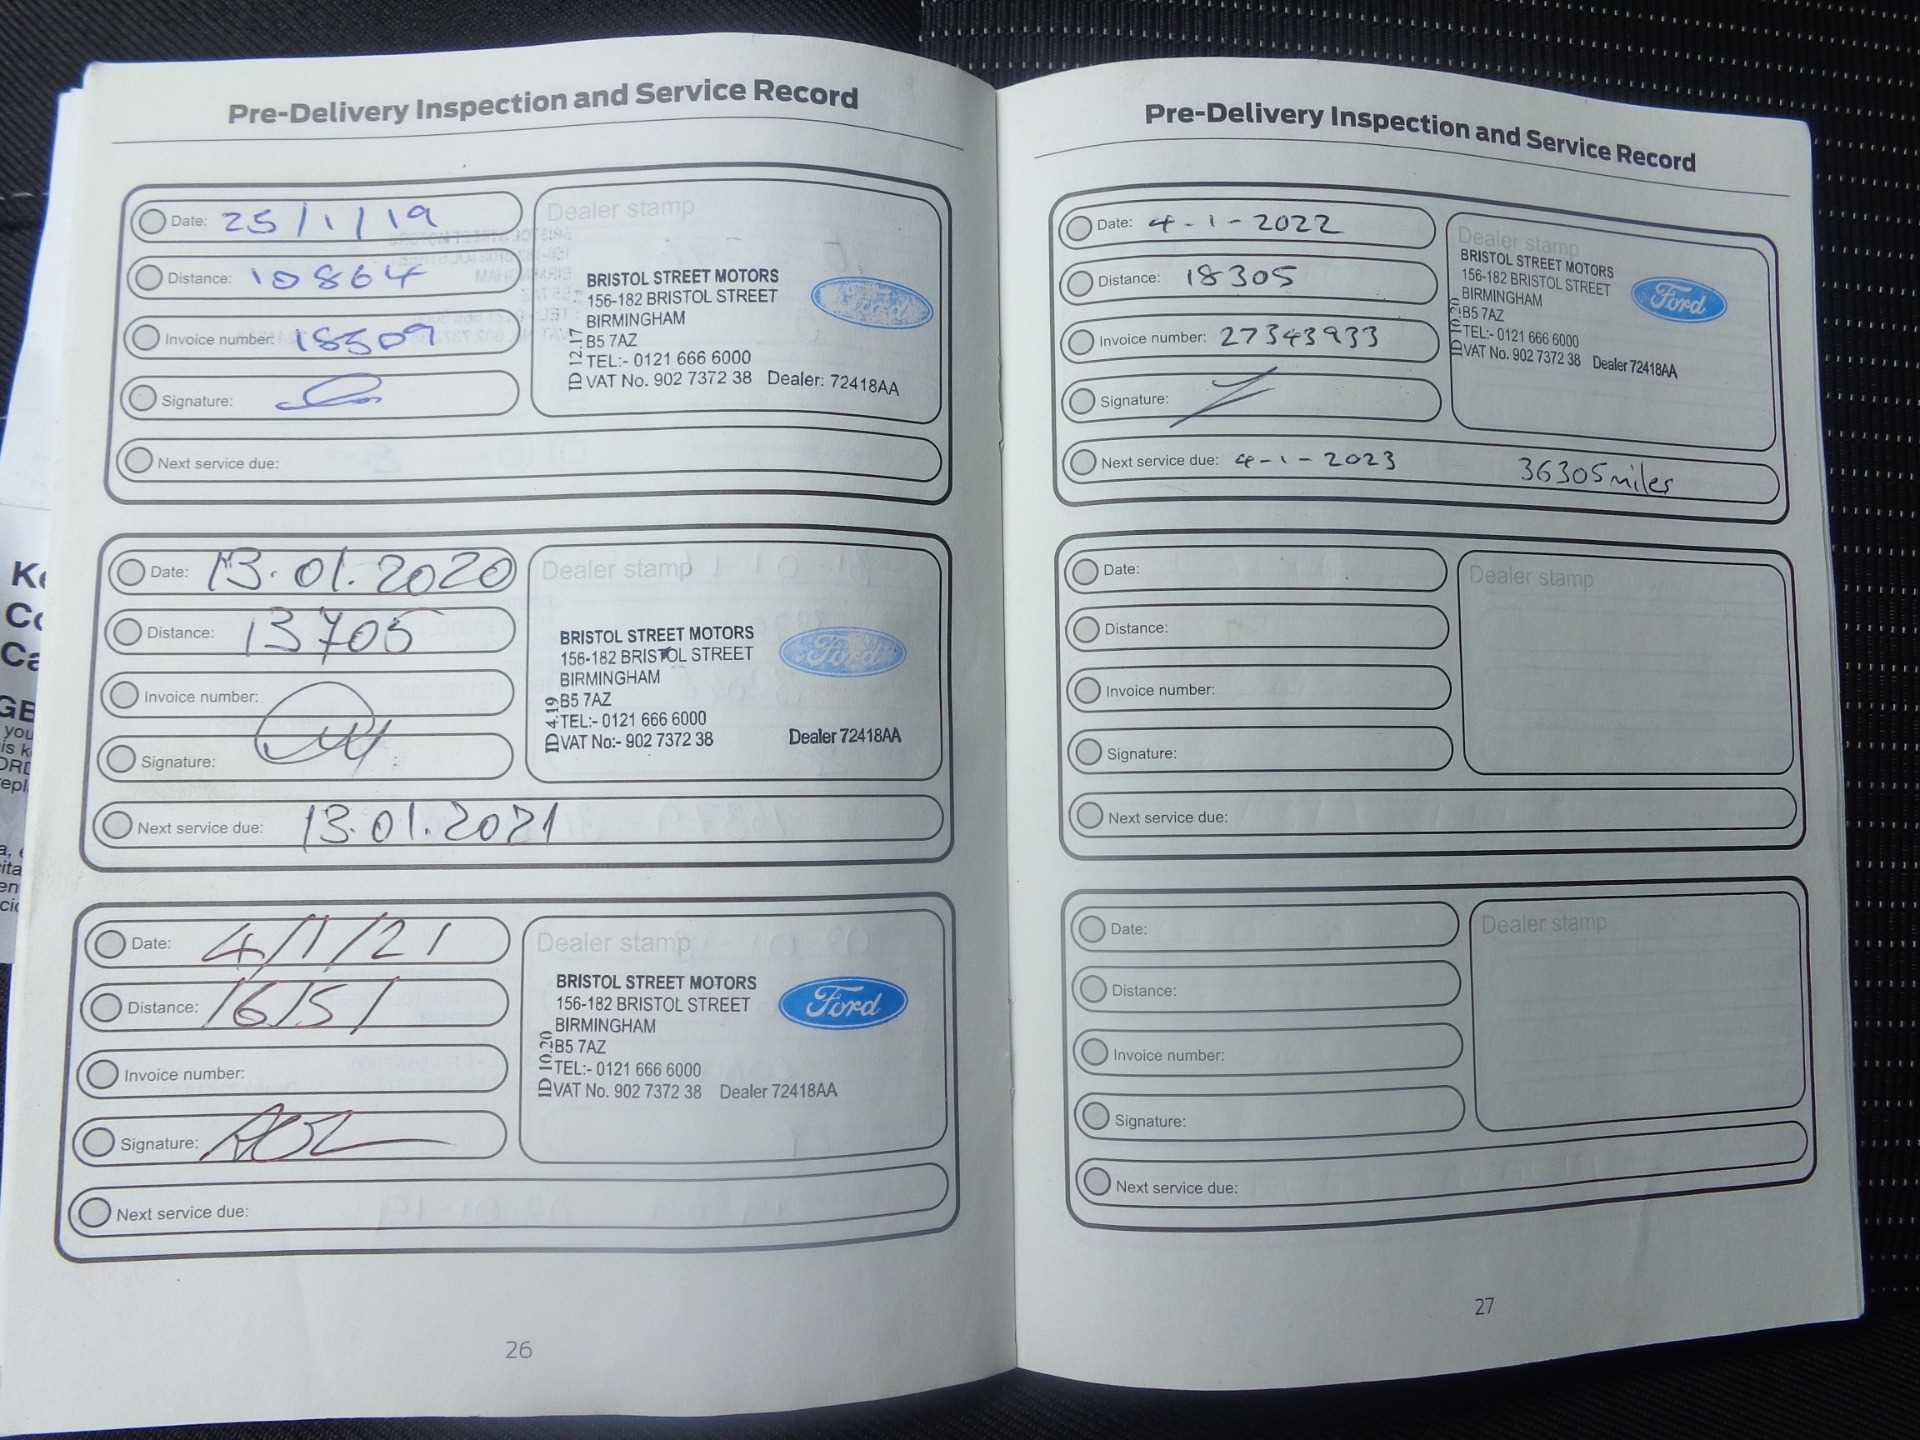 Pre-Delivery Inspection and Service Record
Date: 25/1/19
Distance: 10864
Invoice number: 18509
Signature:
Next service due:
Dealer stamp
BRISTOL STREET MOTORS
156-182 BRISTOL STREET
BIRMINGHAM
B5 7AZ
TEL:- 0121 666 6000
VAT No. 902 7372 38 Dealer: 72418AA
ID 12.17
Ford
Date: 13.01.2020
Distance: 13705
Invoice number:
Signature:
Next service due: 13.01.2021
Dealer stamp
BRISTOL STREET MOTORS
156-182 BRISTOL STREET
BIRMINGHAM
B5 7AZ
TEL:- 0121 666 6000
VAT No:- 902 7372 38 Dealer 72418AA
ID 4.19
Ford
Date: 4/1/21
Distance: 16151
Invoice number:
Signature:
Next service due:
Dealer stamp
BRISTOL STREET MOTORS
156-182 BRISTOL STREET
BIRMINGHAM
B5 7AZ
TEL:- 0121 666 6000
VAT No. 902 7372 38 Dealer 72418AA
ID 10.20
Ford
26
Pre-Delivery Inspection and Service Record
Date: 4-1-2022
Distance: 18305
Invoice number: 27343933
Signature:
Next service due: 4-1-2023 36305 miles
Dealer stamp
BRISTOL STREET MOTORS
156-182 BRISTOL STREET
BIRMINGHAM
B5 7AZ
TEL:- 0121 666 6000
VAT No. 902 7372 38 Dealer 72418AA
ID 10.20
Ford
Date:
Distance:
Invoice number:
Signature:
Next service due:
Dealer stamp
Date:
Distance:
Invoice number:
Signature:
Next service due:
Dealer stamp
27